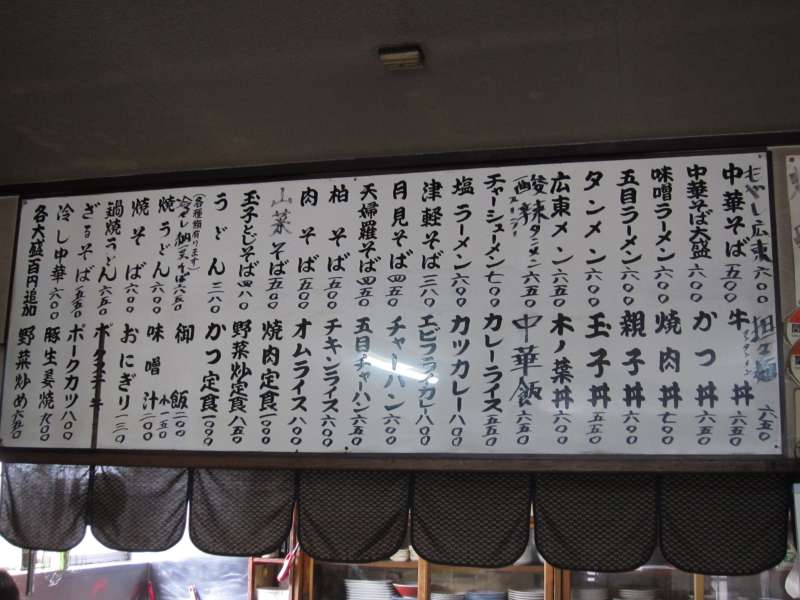 もやし広東 六〇〇
中華そば 五〇〇
中華そば大盛 六〇〇
味噌ラーメン 六〇〇
五目ラーメン 六〇〇
タンメン 六〇〇
広東メン 六五〇
酸辣タンメン 六五〇
チャーシューメン 七〇〇
塩ラーメン 六〇〇
津軽そば 三八〇
月見そば 四五〇
天婦羅そば 四五〇
柏そば 五〇〇
肉そば 五〇〇
山菜そば 五〇〇
玉子とじそば 四八〇
うどん 三八〇
(各種類有ります)
冷し 六五〇
焼うどん 六〇〇
焼そば 六〇〇
鍋焼うどん 六五〇
ざるそば 五五〇
冷し中華 六〇〇
各大盛百円追加
担々麺 六五〇
牛丼 六五〇
かつ丼 六五〇
焼肉丼 七〇〇
親子丼 六〇〇
玉子丼 五五〇
木ノ葉丼 六〇〇
中華飯 六五〇
カレーライス 五五〇
カツカレー 八〇〇
エビフライカレー 八〇〇
チャーハン 六〇〇
五目チャーハン 六五〇
チキンライス 六〇〇
オムライス 八〇〇
焼肉定食 一〇〇〇
野菜炒定食 八五〇
かつ定食 一〇〇〇
御飯 二〇〇
小 一五〇
味噌汁 一〇〇
おにぎり 一三〇
ポークカツ 八〇〇
豚生姜焼 七〇〇
野菜炒め 六五〇